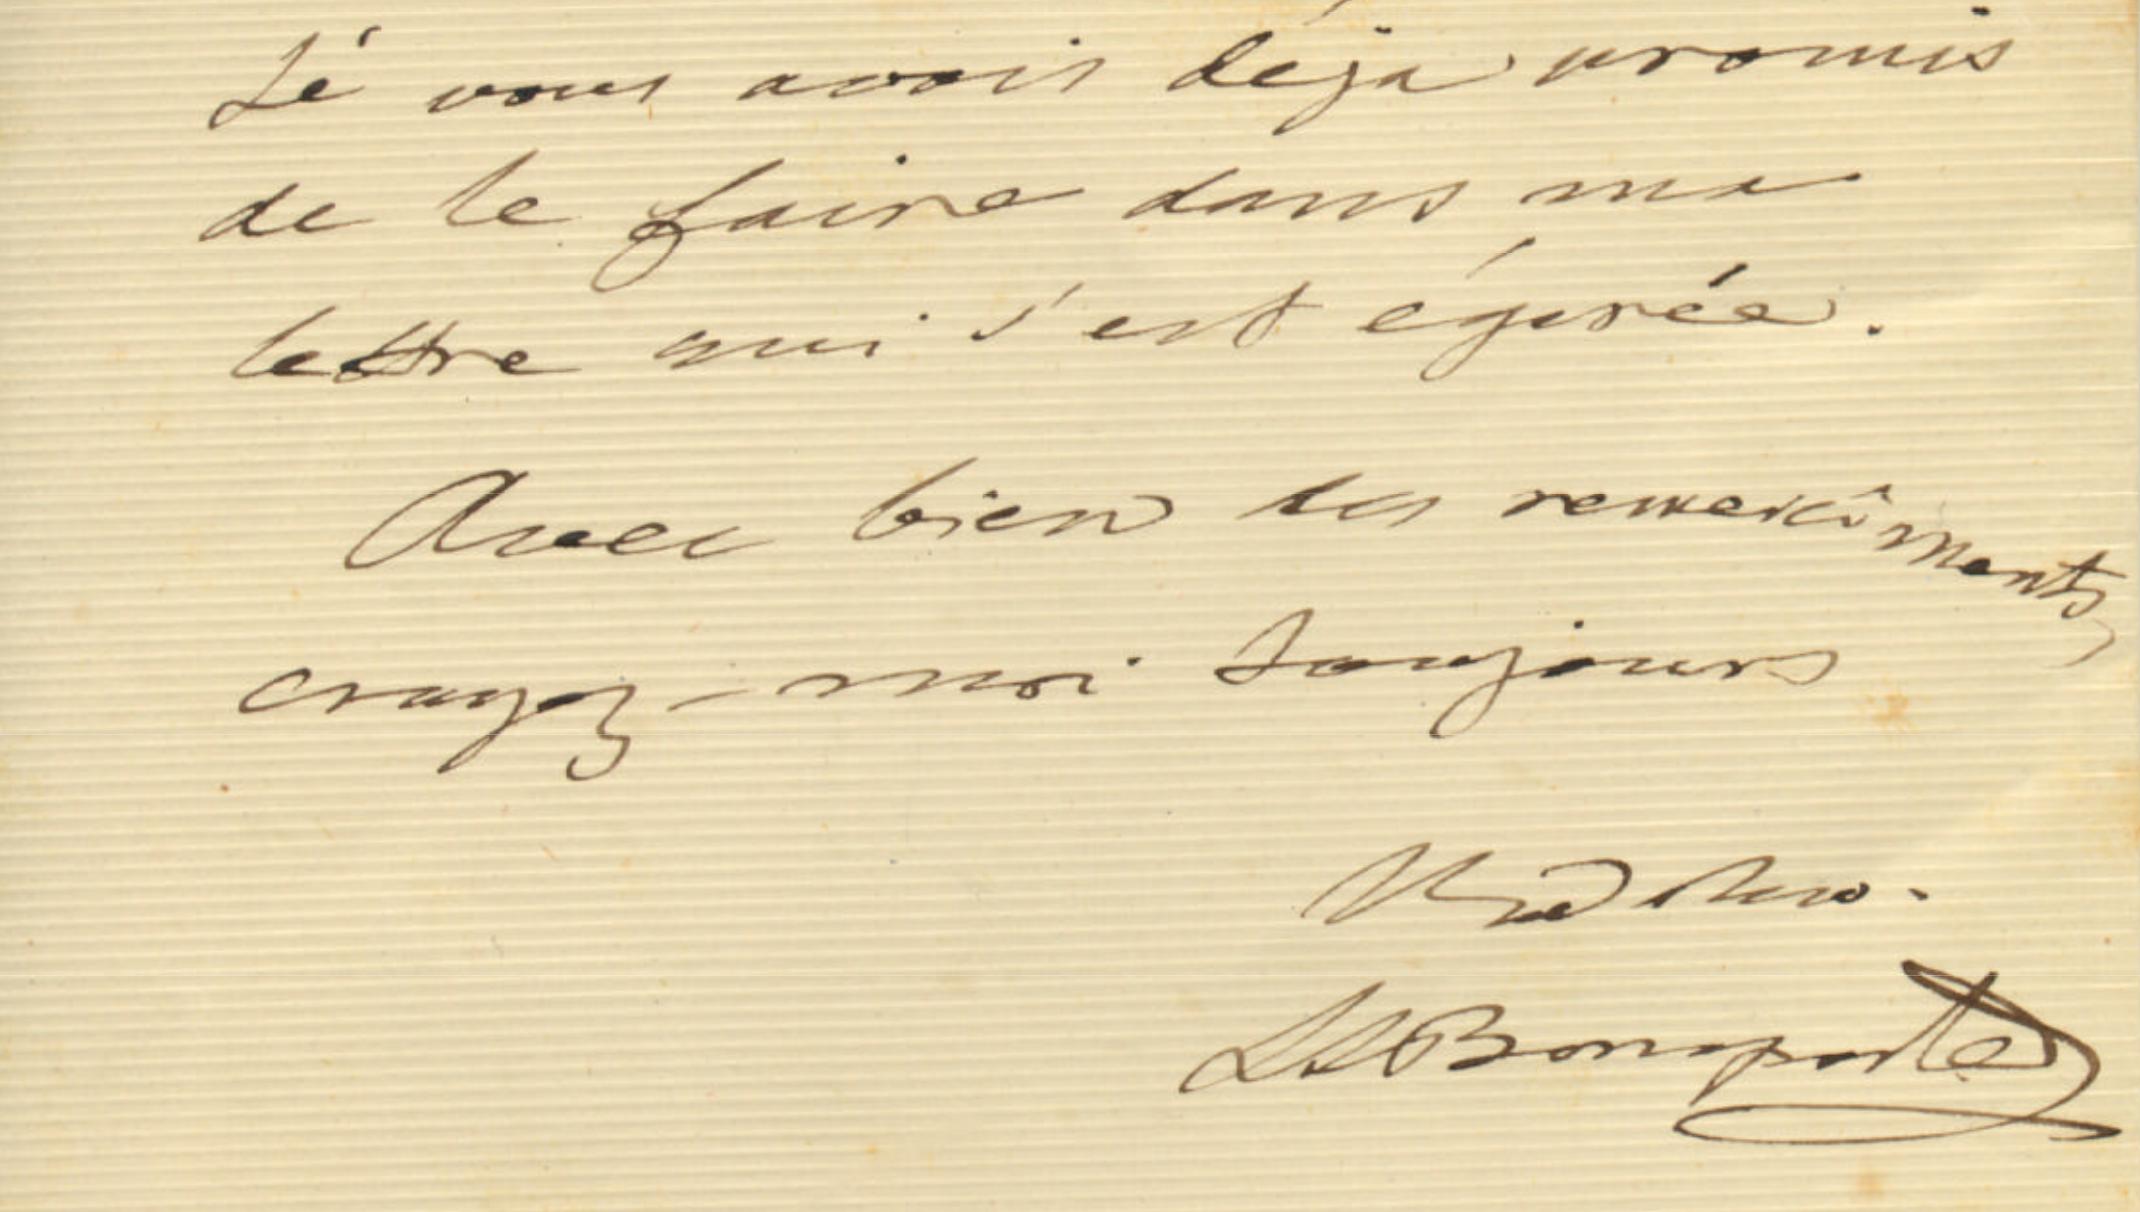 Je vous avais déjà promis
de le faire dans ma
lettre qui s'est égarée.
Avec bien des remercîments,
croyez-moi toujours
LLBonaparte